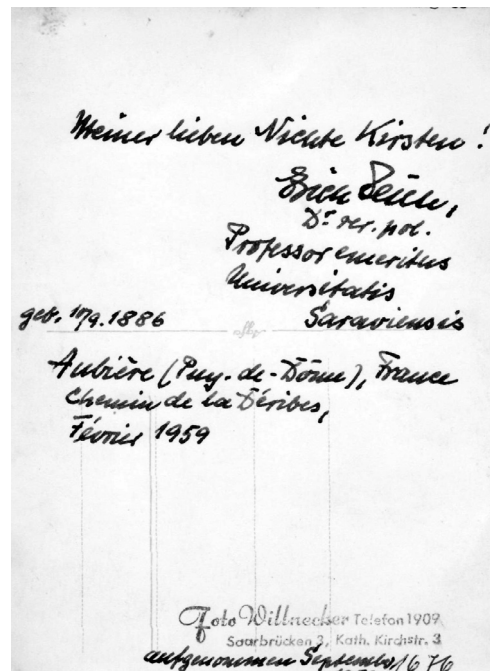 Meiner lieben Nichte Kirsten!
Erich
Dr rer. pol.
Professor emeritus
Universitatis
Saraviensis
geb. 10/9.1886
Aubière (Puy-de-Dôme), France
Chemin de la Déribes,
Février 1959
Foto Willnecker Telefon 1909
Saarbrücken 3, Kath. Kirchstr. 3
aufgenommen September